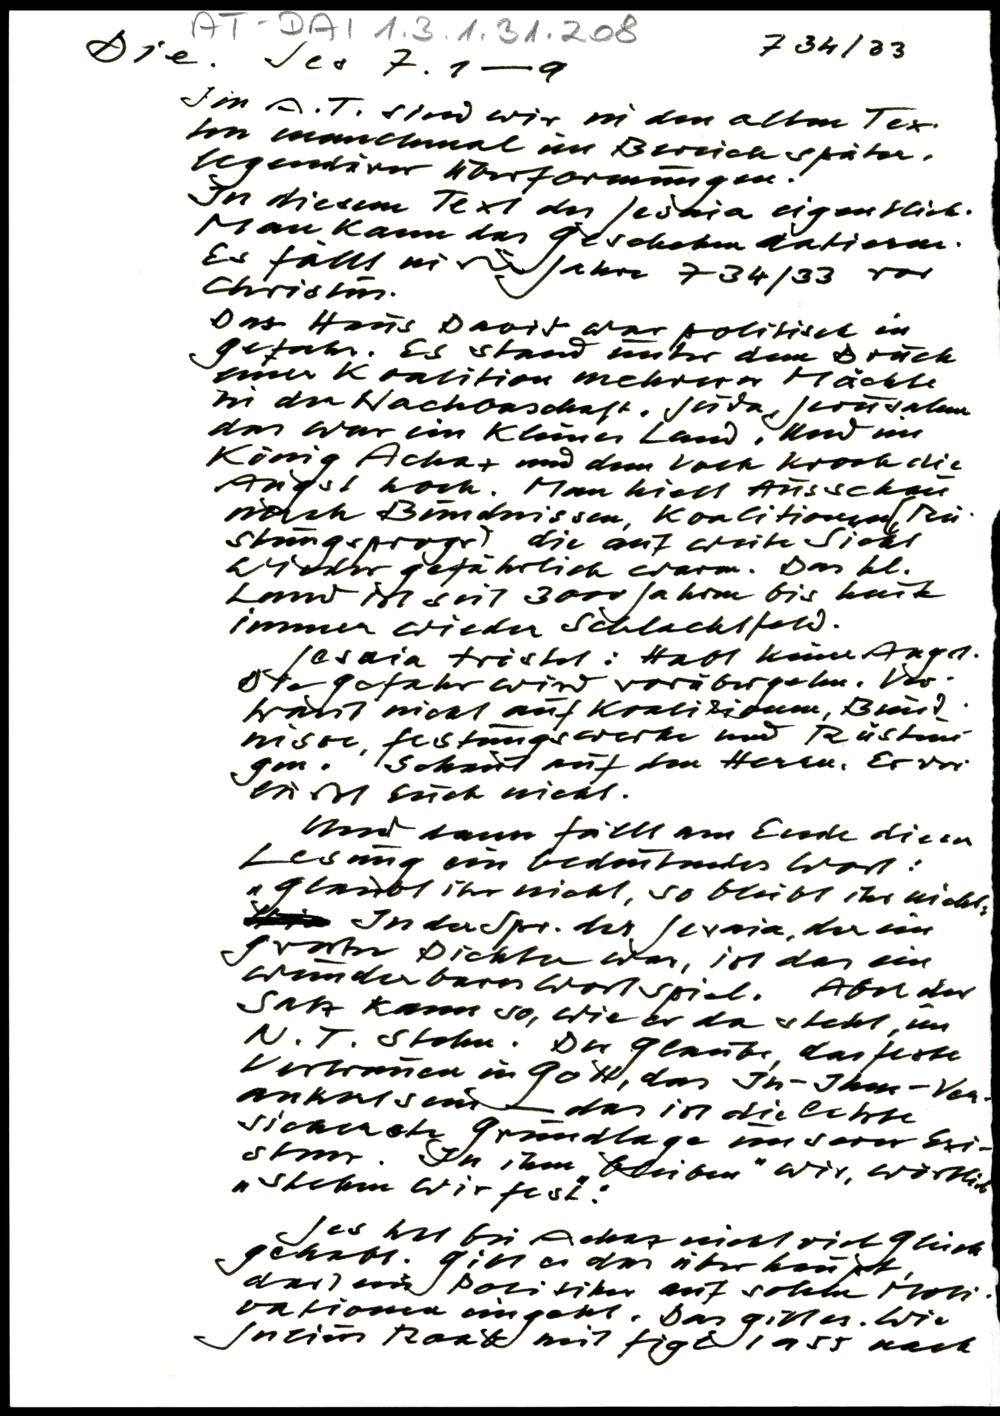 AT-DAI 1.3.1.31.208
Die. Jes 7. 1—9 734/33
Im A.T. sind wir in den alten Tex-
ten manchmal im Bereich später,
legendärer Überformungen.
In diesem Text des Jesaia eigentlich.
Man kann das Geschehen datieren.
Es fällt in Jahre 734/33 vor
Christus.
Das Haus David war politisch in
Gefahr. Es stand unter dem Druck
einer Koalition mehrerer Mächte
in der Nachbarschaft. Juda, Jerusalem
das war ein kleines Land. Und in
König Achaz und dem Volk kroch die
Angst hoch. Man hielt Ausschau
nach Bündnissen, Koalitionen (Rü-
stungsprogr) die auf weite Sicht
wieder gefährlich waren. Das kl.
Land ist seit 3000 Jahren bis heute
immer wieder Schlachtfeld.
Jesaia tröstet: Habt keine Angst.
Die Gefahr wird vorübergehn. Ver-
traut nicht auf Koalitionen, Bünd-
nisse, Festungswerke und Rüstun-
gen. Schaut auf den Herrn. Er ver-
läßt Euch nicht.
Und dann fällt am Ende dieser
Lesung ein bedeutendes Wort:
"Glaubt ihr nicht, so bleibt ihr nicht"
In der Spr. des Jesaia, der ein
großer Dichter war, ist das ein
wunderbares Wortspiel. Aber der
Satz kann so, wie er da steht, im
N.T. stehn. Der Glaube, das feste
Vertrauen in Gott, das In-Ihm-Ver-
ankertsein — das ist die letzte
sicherste Grundlage unserer Exi-
stenz. In ihm "bleiben" wir, wörtlich
"stehen wir fest".
Jes hat bei Achaz nicht viel Glück
gehabt. Gibt es das überhaupt,
daß ein Politiker auf solche Moti-
vationen eingeht. Das gibt es. Wie
Julius Raab mit Figl 1955 nach